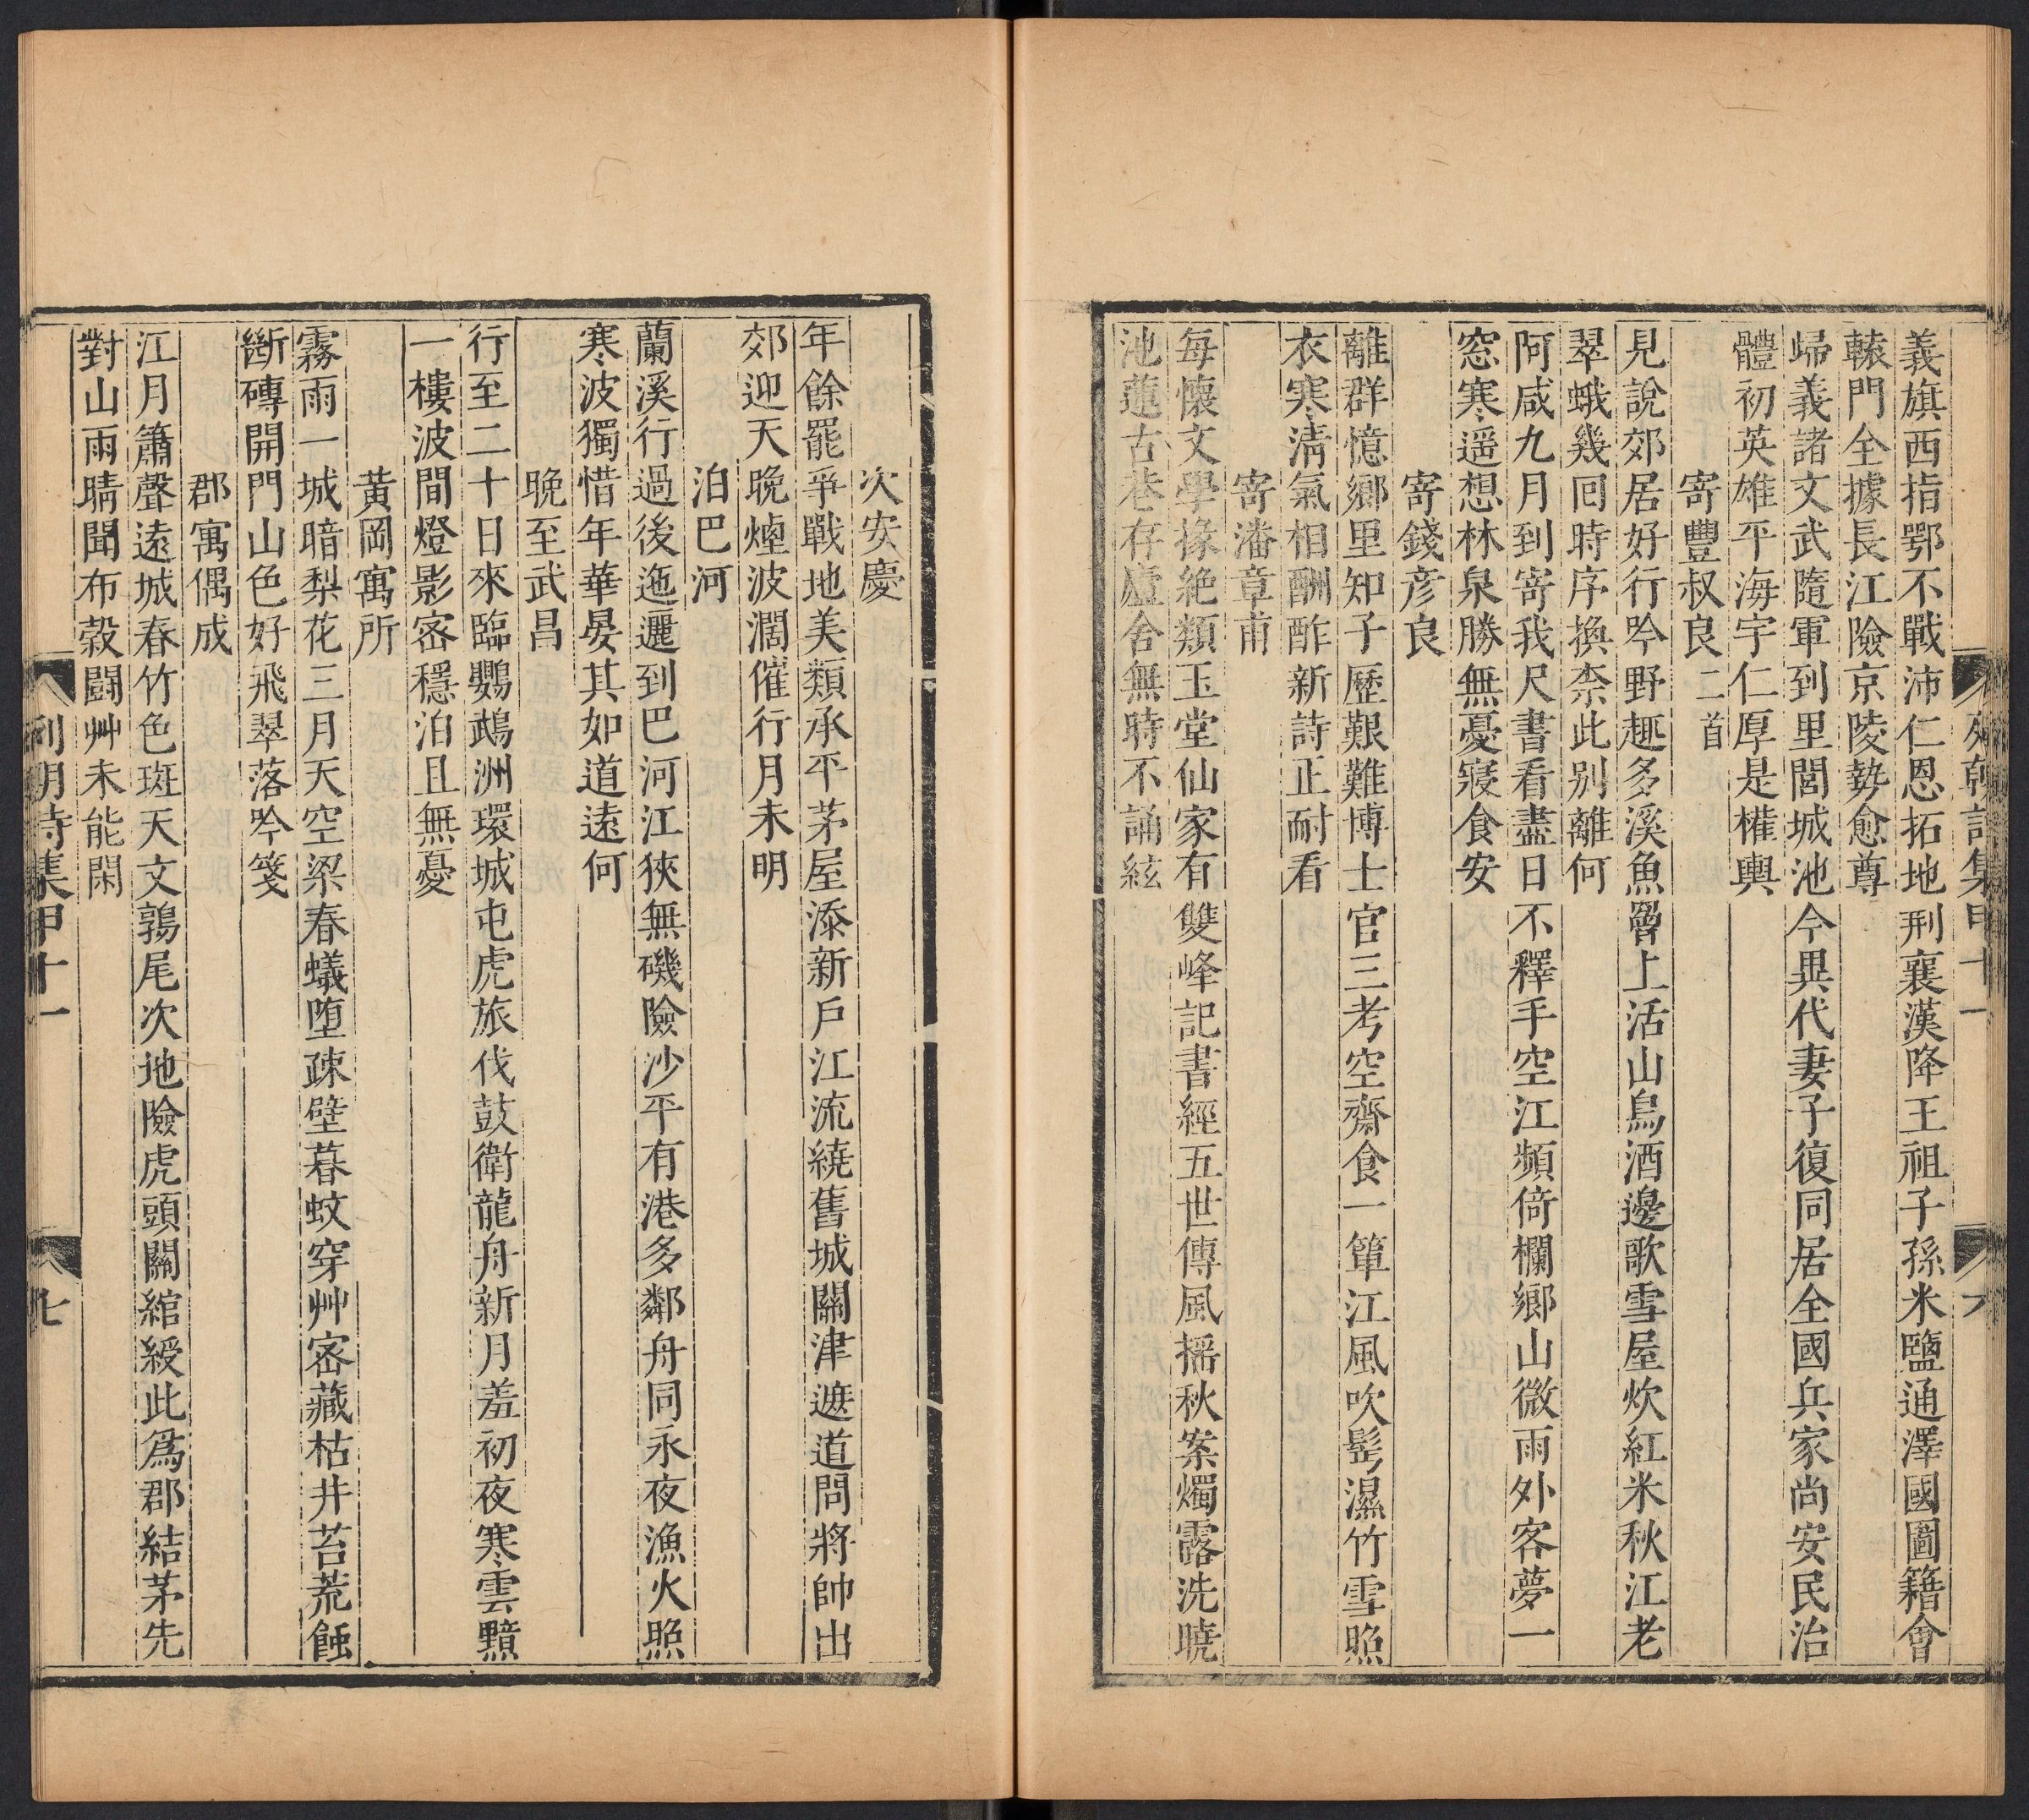 列朝詩集甲十一 六
義旗西指鄂不戰沛仁恩拓地荆襄漢降王祖子孫米鹽通澤國圖籍會
轅門全據長江險京陵勢愈尊
歸義諸文武隨軍到里閭城池今異代妻子復同居全國兵家尚安民治
體初英雄平海宇仁厚是權輿
寄豐叔良二首
見說郊居好行吟野趣多溪魚罾上活山鳥酒邊歌雪屋炊紅米秋江老
翠蛾幾回時序換柰此别離何
阿咸九月到寄我尺書看盡日不釋手空江頻倚欄鄉山微雨外客夢一
窓寒遥想林泉勝無憂寢食安
寄錢彦良
離群憶鄉里知子歷艱難博士官三考空齋食一簞江風吹髩濕竹雪照
衣寒清氣相酬酢新詩正耐看
寄潘章甫
每懷文學掾絶類玉堂仙家有雙峰記書經五世傳風摇秋案燭露洗曉
池蓮古巷存廬舍無時不誦絃
次安慶
年餘罷爭戰地美類承平茅屋添新戶江流繞舊城關津遮道問將帥出
郊迎天晚煙波濶催行月未明
泊巴河
蘭溪行過後迤邐到巴河江狹無磯險沙平有港多鄰舟同永夜漁火照
寒波獨惜年華晏其如道遠何
晚至武昌
行至二十日來臨鸚鵡洲環城屯虎旅伐鼓衛龍舟新月羞初夜寒雲黯
一樓波間燈影密穩泊且無憂
黃岡寓所
霧雨一城暗梨花三月天空梁春蟻墮疎壁暮蚊穿艸密藏枯井苔荒蝕
斷磚開門山色好飛翠落吟箋
郡寓偶成
江月簫聲遠城春竹色斑天文鶉尾次地險虎頭關綰綬此爲郡結茅先
對山雨晴聞布穀闘艸未能閑
列朝詩集甲十一 七